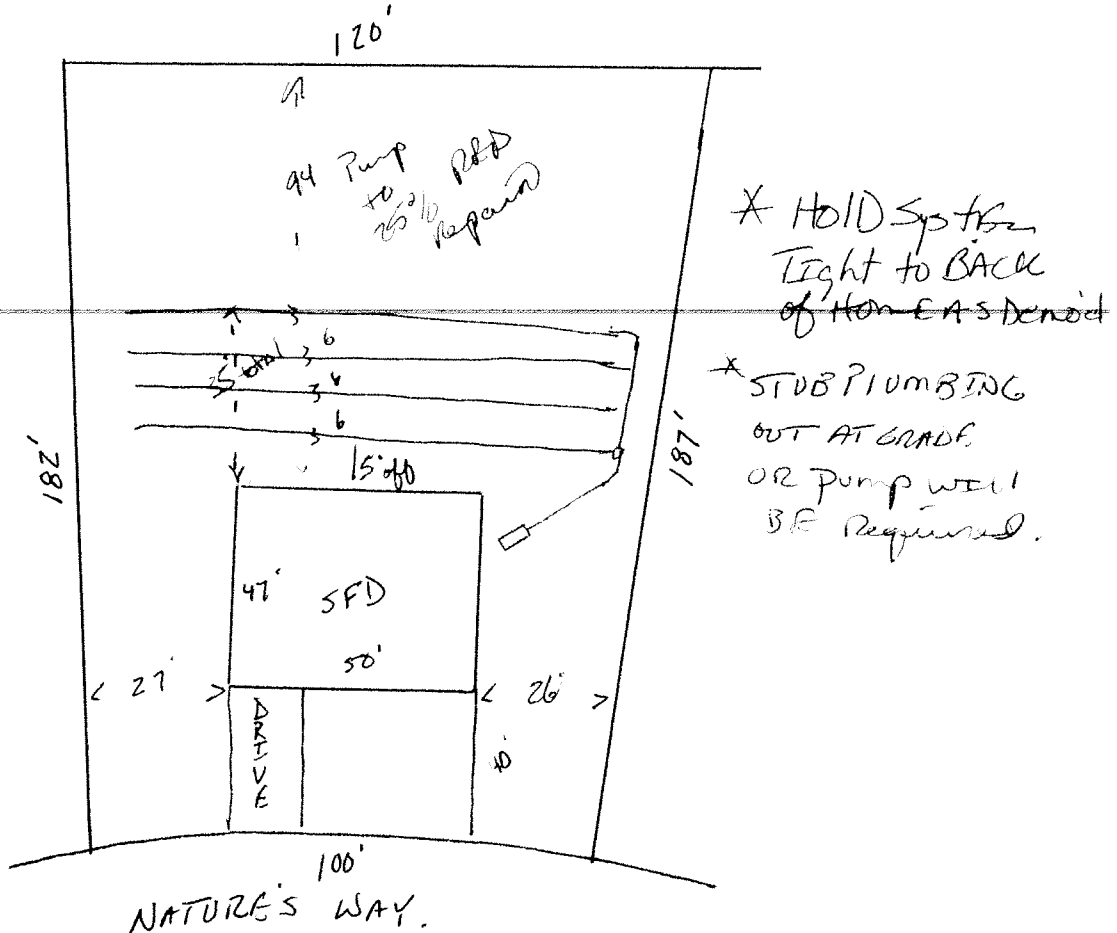 120'
94 Pump
to
25% RED
Repair
* HOlD System
TIght to BACK
of HomE AS Demo'd
* STUB PlUMBING
OUT AT GRADE
OR pump will
BE Required.
3
6
3
6
3
6
3
15' off
182'
187'
47'
SFD
50'
27'
26'
DRIVE
40'
100'
NATURE'S WAY.